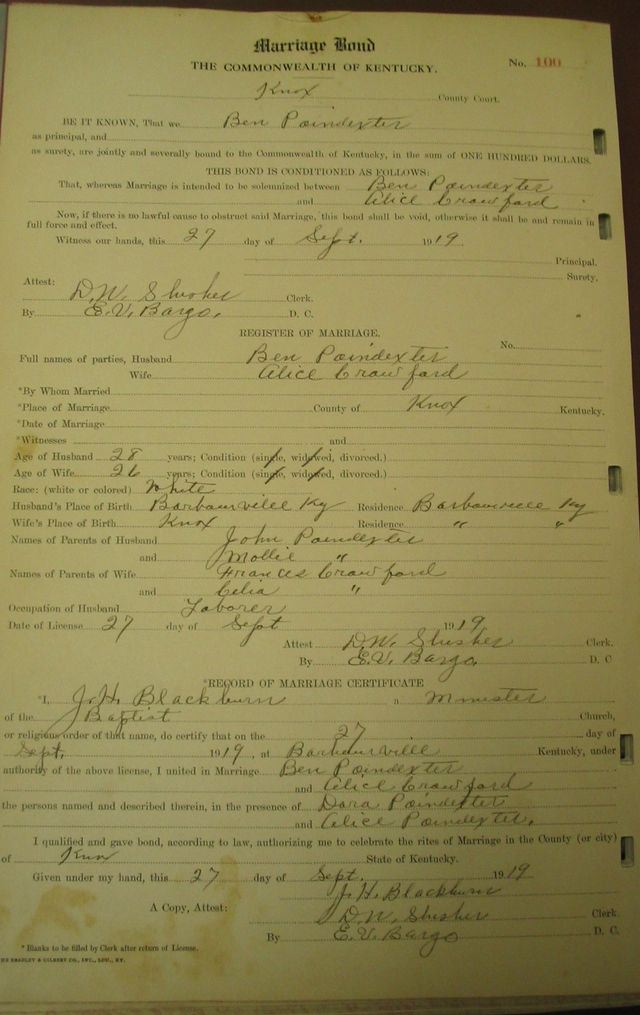 Marriage Bond
THE COMMONWEALTH OF KENTUCKY. No. 100
Knox County Court.
BE IT KNOWN, That we Ben Poindexter
as principal, and
as surety, are jointly and severally bound to the Commonwealth of Kentucky, in the sum of ONE HUNDRED DOLLARS.
THIS BOND IS CONDITIONED AS FOLLOWS:
That, whereas Marriage is intended to be solemnized between Ben Poindexter
and Alice Crawford
Now, if there is no lawful cause to obstruct said Marriage, this bond shall be void, otherwise it shall be and remain in
full force and effect.
Witness our hands, this 27 day of Sept. 1919.
Principal.
Surety.
Attest:
D.W. Slusher Clerk.
By E.V. Bargo. D. C.
REGISTER OF MARRIAGE.
No.
Full names of parties, Husband Ben Poindexter
Wife Alice Crawford
*By Whom Married
*Place of Marriage County of Knox Kentucky.
*Date of Marriage
*Witnesses and
Age of Husband 28 years; Condition (single, widowed, divorced.)
Age of Wife 26 years; Condition (single, widowed, divorced.)
Race: (white or colored) White
Husband's Place of Birth Barbourville Ky Residence Barbourville Ky
Wife's Place of Birth Knox Residence " "
Names of Parents of Husband John Poindexter
and Mollie "
Names of Parents of Wife Frances Crawford
and Celia "
Occupation of Husband Laborer
Date of License 27 day of Sept 1919
Attest D.W. Slusher Clerk.
By E.V. Bargo. D. C
*RECORD OF MARRIAGE CERTIFICATE
*I, J.H. Blackburn a Minister
of the Baptist Church,
or religious order of that name, do certify that on the 27 day of
Sept. 1919, at Barbourville Kentucky, under
authority of the above license, I united in Marriage Ben Poindexter
and Alice Crawford
the persons named and described therein, in the presence of Dora Poindexter
and Alice Poindexter.
I qualified and gave bond, according to law, authorizing me to celebrate the rites of Marriage in the County (or city)
of Knox State of Kentucky.
Given under my hand, this 27 day of Sept. 1919
J.H. Blackburn
A Copy, Attest: D.W. Slusher Clerk.
By E.V. Bargo D. C.
* Blanks to be filled by Clerk after return of License.
BRADLEY & GILBERT CO., INC., LOU., KY.